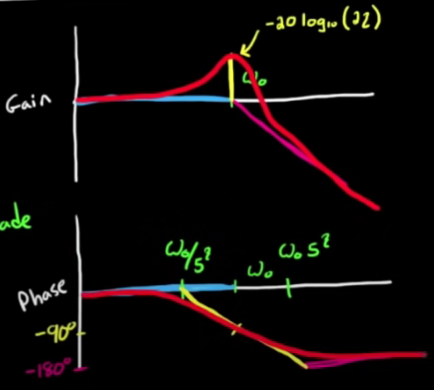 -20 log₁₀(2ζ)
Gain
ω₀
ade
ω₀/5^ζ
ω₀
ω₀ 5^ζ
Phase
-90°
-180°